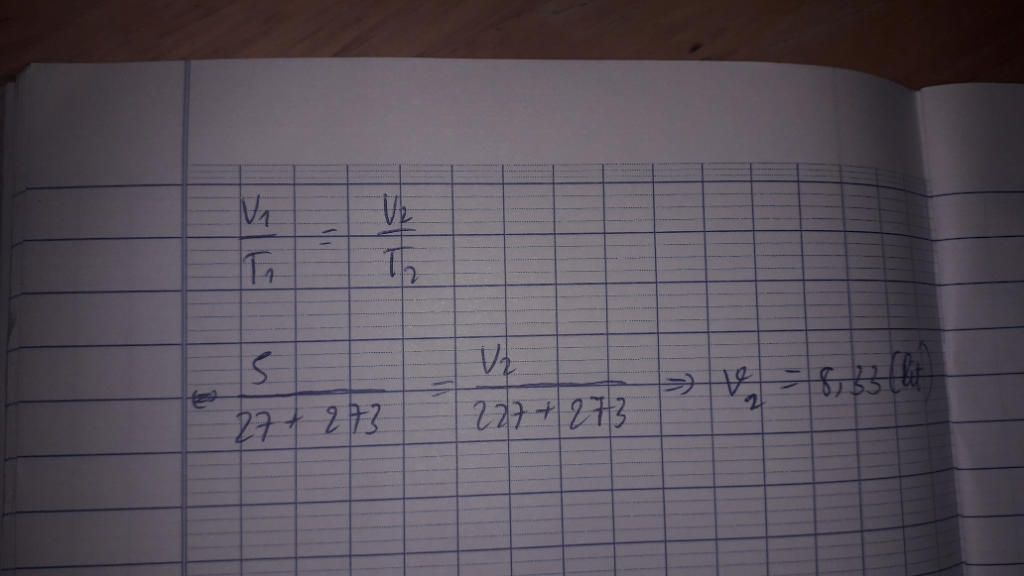 V₁/T₁ = V₂/T₂
⇔ 5/(27 + 273) = V₂/(227 + 273) ⇒ V₂ = 8,33 (lít)